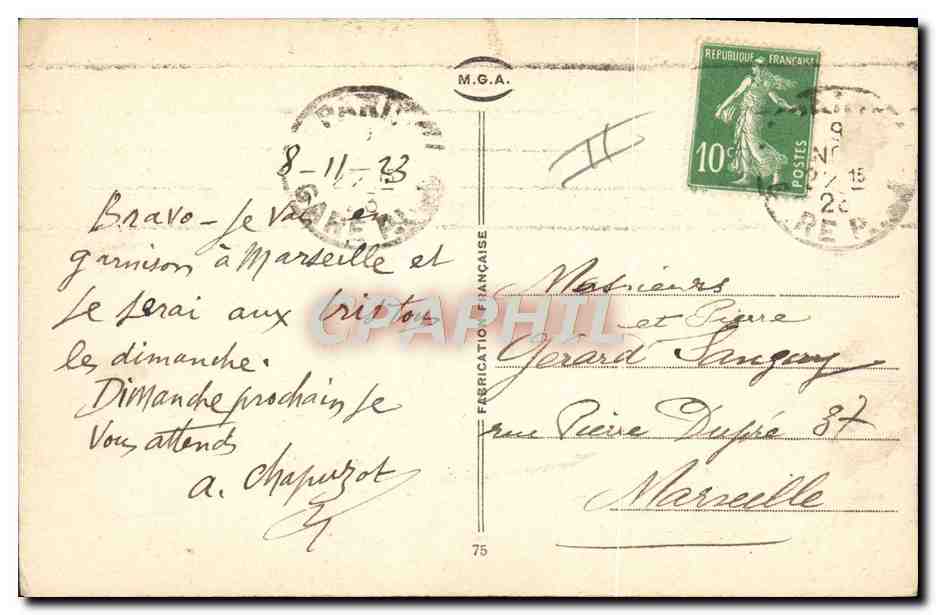 M.G.A.
REPUBLIQUE FRANÇAISE
10c
POSTES
PARIS
GARE P.
8-11-23
Bravo - Je vais en
garnison à Marseille et
je serai aux tristous
les dimanche.
Dimanche prochain je
Vous attends
a. Chapuzot
FABRICATION FRANÇAISE
75
II
9
15
GARE P.
Messieurs
et Pierre
Gérard
rue Pierre Dupré 37
Marseille
CPAPHIL